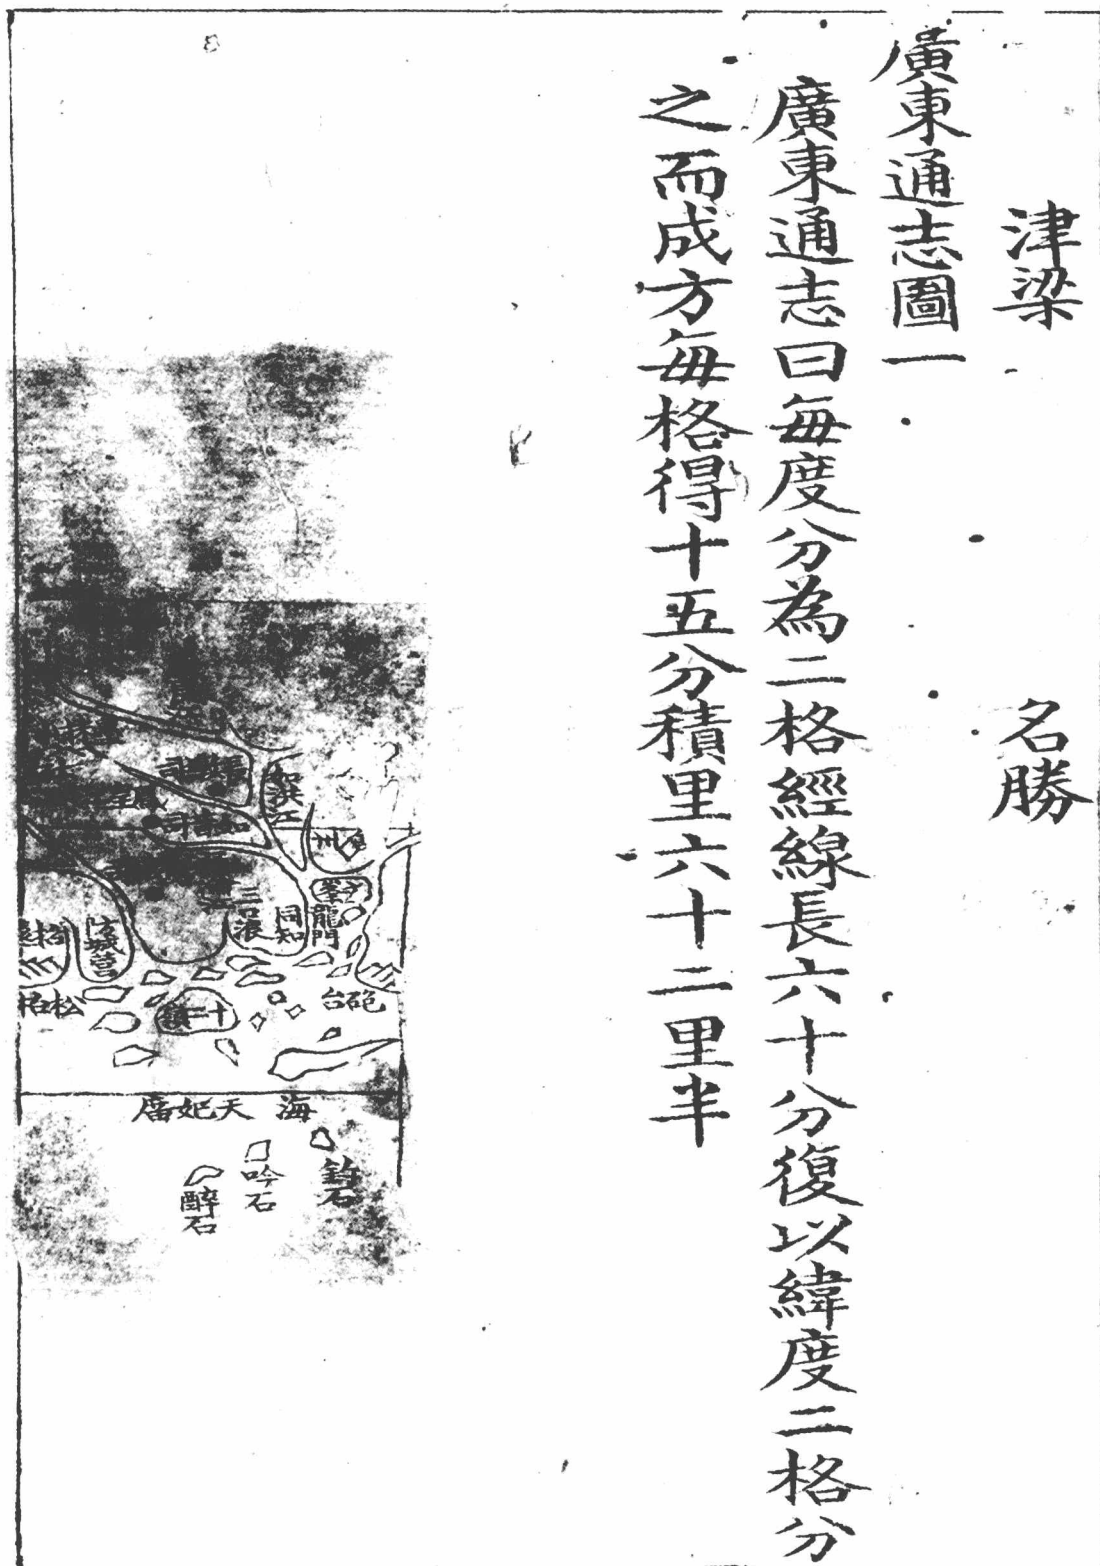 津梁　名勝
廣東通志圖一
廣東通志曰每度分為二格經線長六十分復以緯度二格分
之而成方每格得十五分積里六十二里半
龍門
同知
防城營
砲台
松栢
海
天妃廟
吟石
醉石